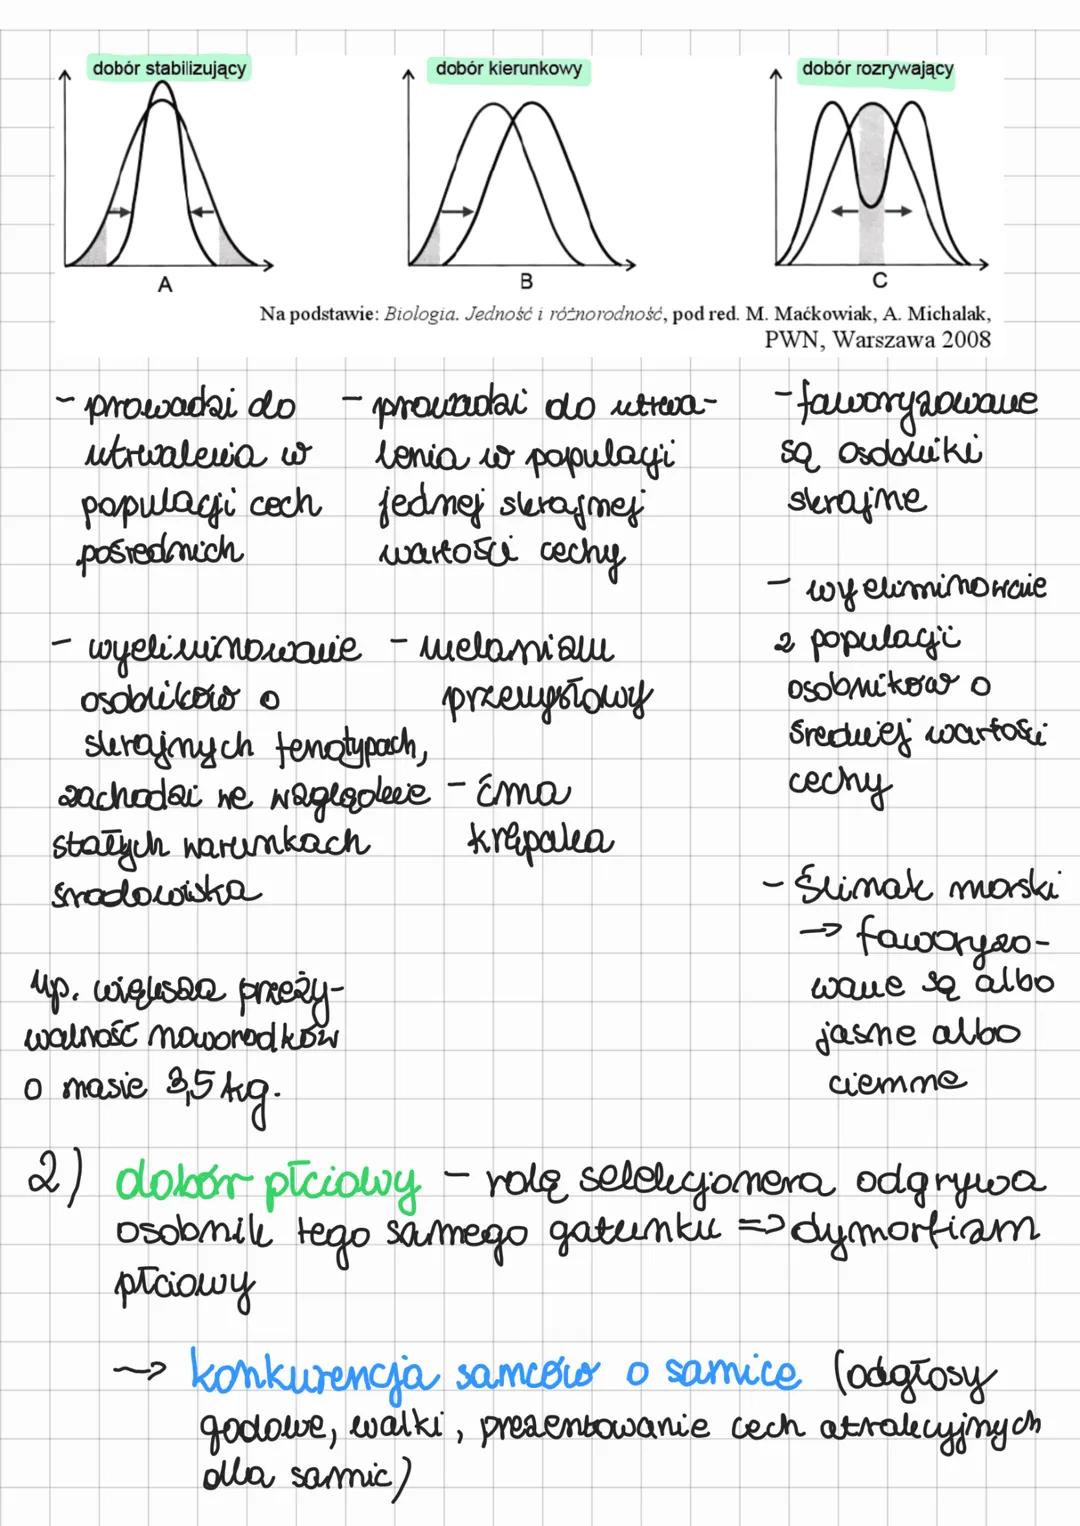 dobór stabilizujący
dobór kierunkowy
dobór rozrywający
A
B
C
Na podstawie: Biologia. Jedność i różnorodność, pod red. M. Maćkowiak, A. Michalak,
PWN, Warszawa 2008
- prowadzi do
utrwalenia w
populacji cech
pośrednich
- wyeliminowanie
osobników o
skrajnych fenotypach,
zachodzi we względnie
stałych warunkach
środowiska
np. większa przeży-
walność noworodków
o masie 3,5 kg.
- prowadzi do utrwa-
lenia w populacji
jednej skrajnej
wartości cechy
- melanizm
przemysłowy
- ćma
krępaka
- faworyzowane
są osobniki
skrajne
- wyeliminowanie
z populacji
osobników o
średniej wartości
cechy
- Ślimak morski
→ faworyzo-
wane są albo
jasne albo
ciemne
2) dobór płciowy - rolę selekcjonera odgrywa
osobnik tego samego gatunku => dymorfizm
płciowy
→ konkurencja samców o samice (odgłosy
godowe, walki, prezentowanie cech atrakcyjnych
dla samic)